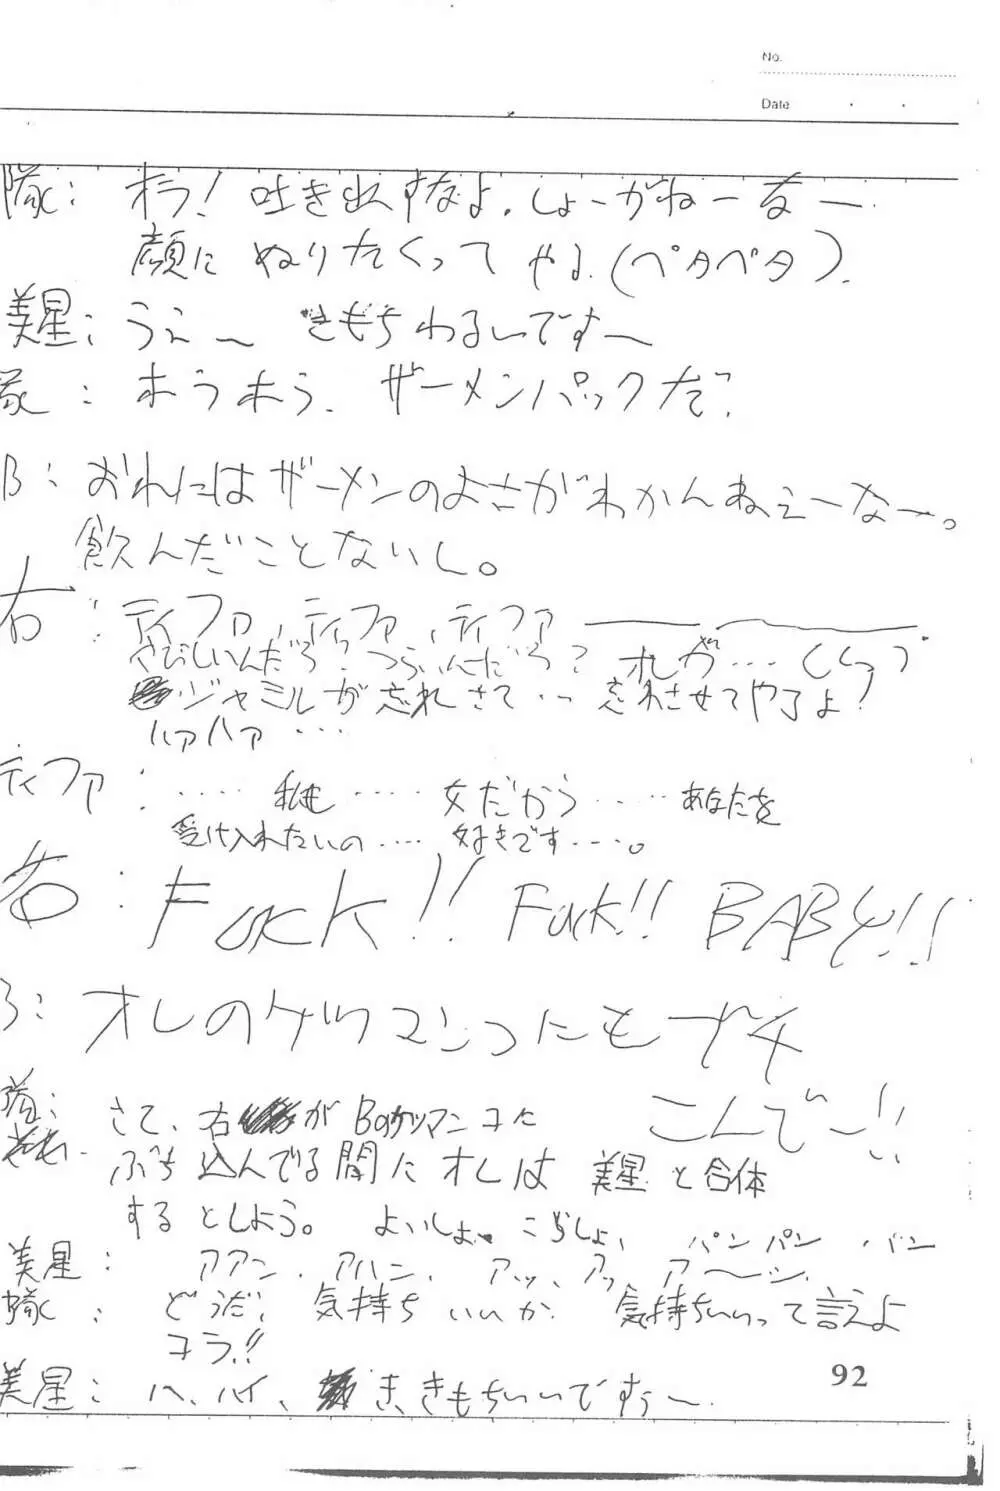 No.
Date
隊：オラ！吐き出すなよ。しょーがねーなー
顔にぬりたくってやる（ペタペタ）。
美星：うえ〜 きもちわるいですー
隊：ホラホラ、ザーメンパックだ？
B：おれにはザーメンのよさがわかんねえーなー。
飲んだことないし。
右：ティファ、ティファ、ティファ
さびしいんだろ？つらいんだろ？オレが…
ジャミルが忘れさせて…忘れさせてやるよ？
ハァハァ…
ティファ：……私も……女だから……あなたを
受け入れたいの……好きです……。
右：Fuck!! Fuck!! BABY!!
B：オレのケツマンコにもブチ
こんでー!!
隊：さて、右がBのケツマンコに
ぶち込んでる間にオレは美星と合体
するとしよう。よいしょ、こらしょ、パンパンパン
美星：アアン、アハン、アッ、アッ、ア〜ン、
隊：どうだ、気持ちいいか、気持ちいいって言えよ
コラ!!
美星：ハ、ハイ、き、きもちいいですぅ〜
92